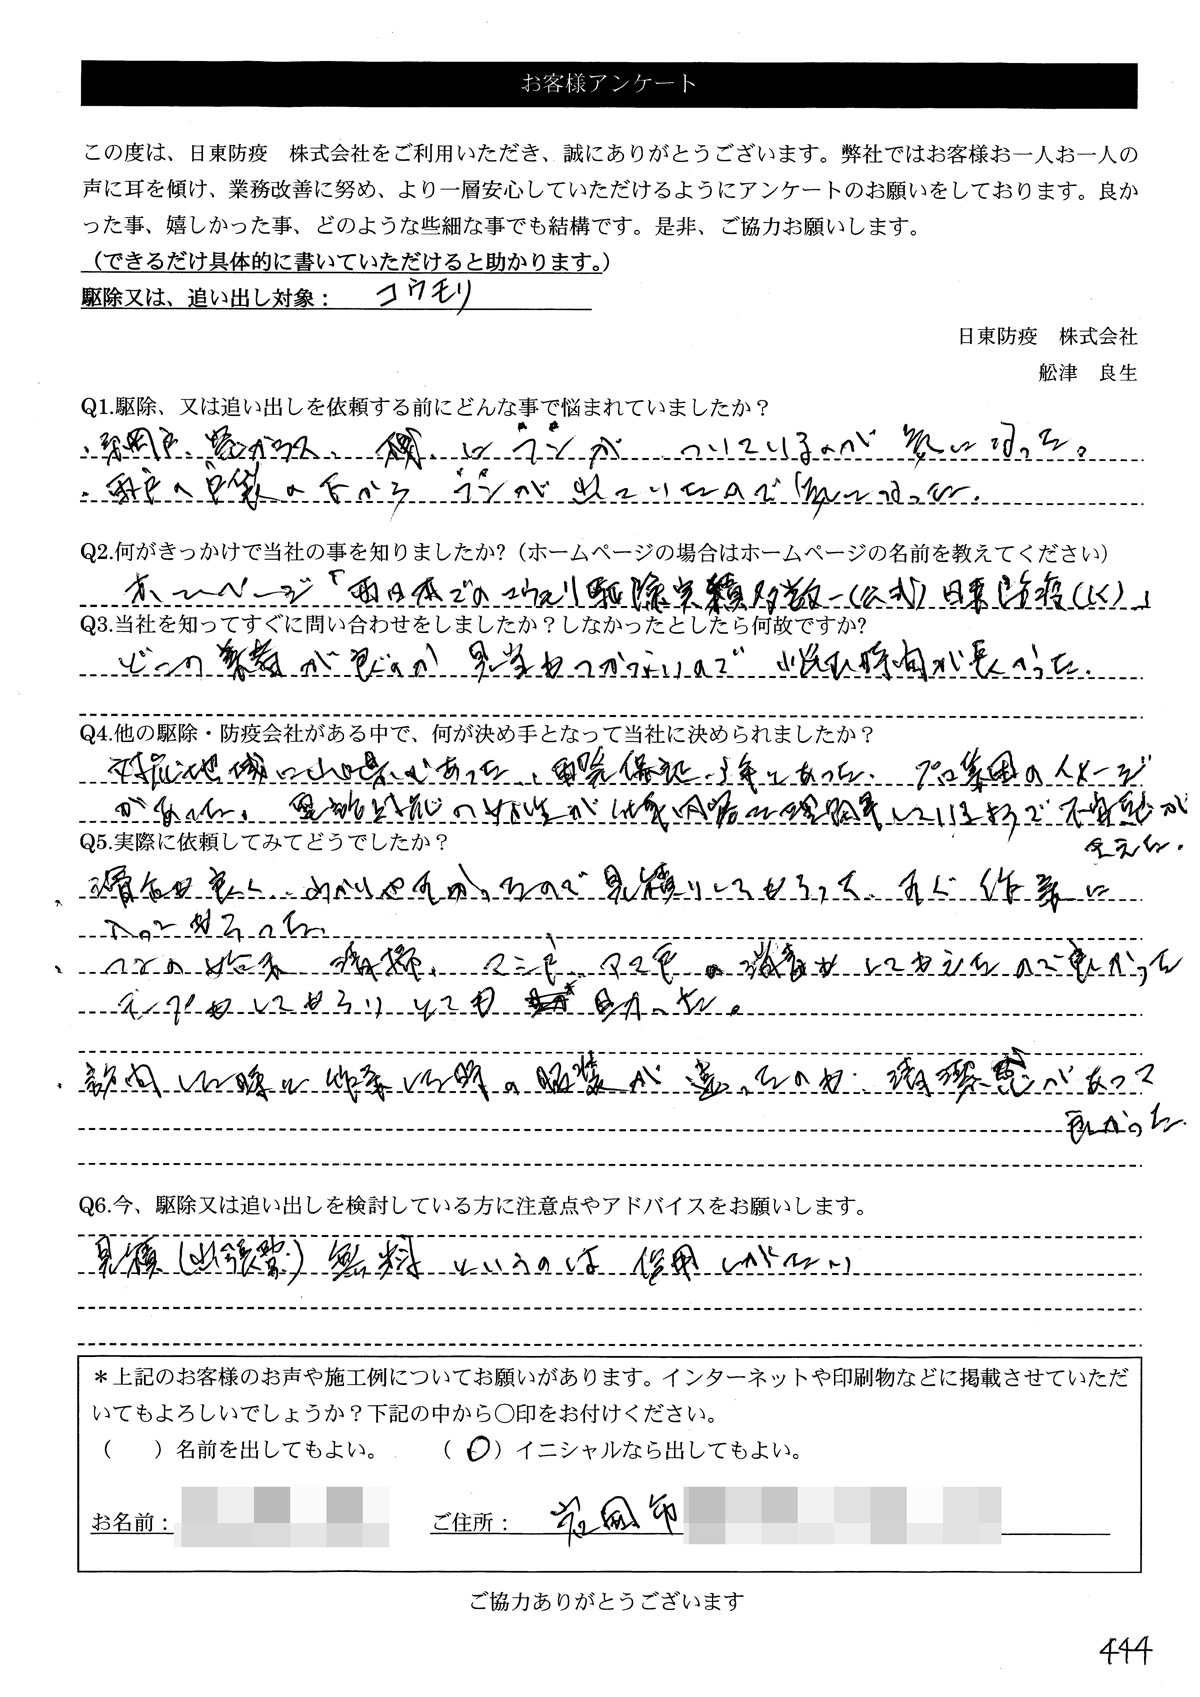 お客様アンケート
この度は、日東防疫　株式会社をご利用いただき、誠にありがとうございます。弊社ではお客様お一人お一人の
声に耳を傾け、業務改善に努め、より一層安心していただけるようにアンケートのお願いをしております。良か
った事、嬉しかった事、どのような些細な事でも結構です。是非、ご協力お願いします。
（できるだけ具体的に書いていただけると助かります。）
駆除又は、追い出し対象： コウモリ
日東防疫　株式会社
舩津　良生
Q1.駆除、又は追い出しを依頼する前にどんな事で悩まれていましたか？
、窓ガラス、 にフンが ついているのが気になった。
・雨戸の戸袋の下から フンが出ていたので気になった。
Q2.何がきっかけで当社の事を知りましたか?（ホームページの場合はホームページの名前を教えてください）
ホームページ「西日本でのコウモリ駆除実績多数－(公式)日東防疫(K)」
Q3.当社を知ってすぐに問い合わせをしましたか？しなかったとしたら何故ですか?
どこの業者が良いのか 見当もつかないので 悩む時間が長かった。
Q4.他の駆除・防疫会社がある中で、何が決め手となって当社に決められましたか？
対応地域に山口県があった、 保証 年とあった。 プロ集団のイメージ
があった。 電話対応の女性が仕事内容を理解しているようで 不安が
Q5.実際に依頼してみてどうでしたか？
良く、わかりやすかったので 見積りしてもらって、すぐ 作業に
入ってもらった。
フンの始末 清掃、 の消毒もしてもらえたので良かった
してもらい とても 助かった。
・訪問した時と作業した時の服装が違ったのも 清潔感があって
良かった
Q6.今、駆除又は追い出しを検討している方に注意点やアドバイスをお願いします。
見積(出張費)無料というのは 信用しがたい
＊上記のお客様のお声や施工例についてお願いがあります。インターネットや印刷物などに掲載させていただ
いてもよろしいでしょうか？下記の中から〇印をお付けください。
（　　）名前を出してもよい。　（ 〇 ）イニシャルなら出してもよい。
お名前：　ご住所：　岩国市
ご協力ありがとうございます
444